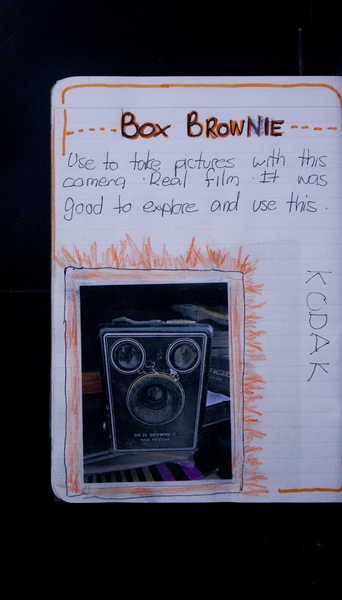 Box BROWNIE
Use to take pictures with this
camera. Real film. It was
good to explore and use this.
KODAK